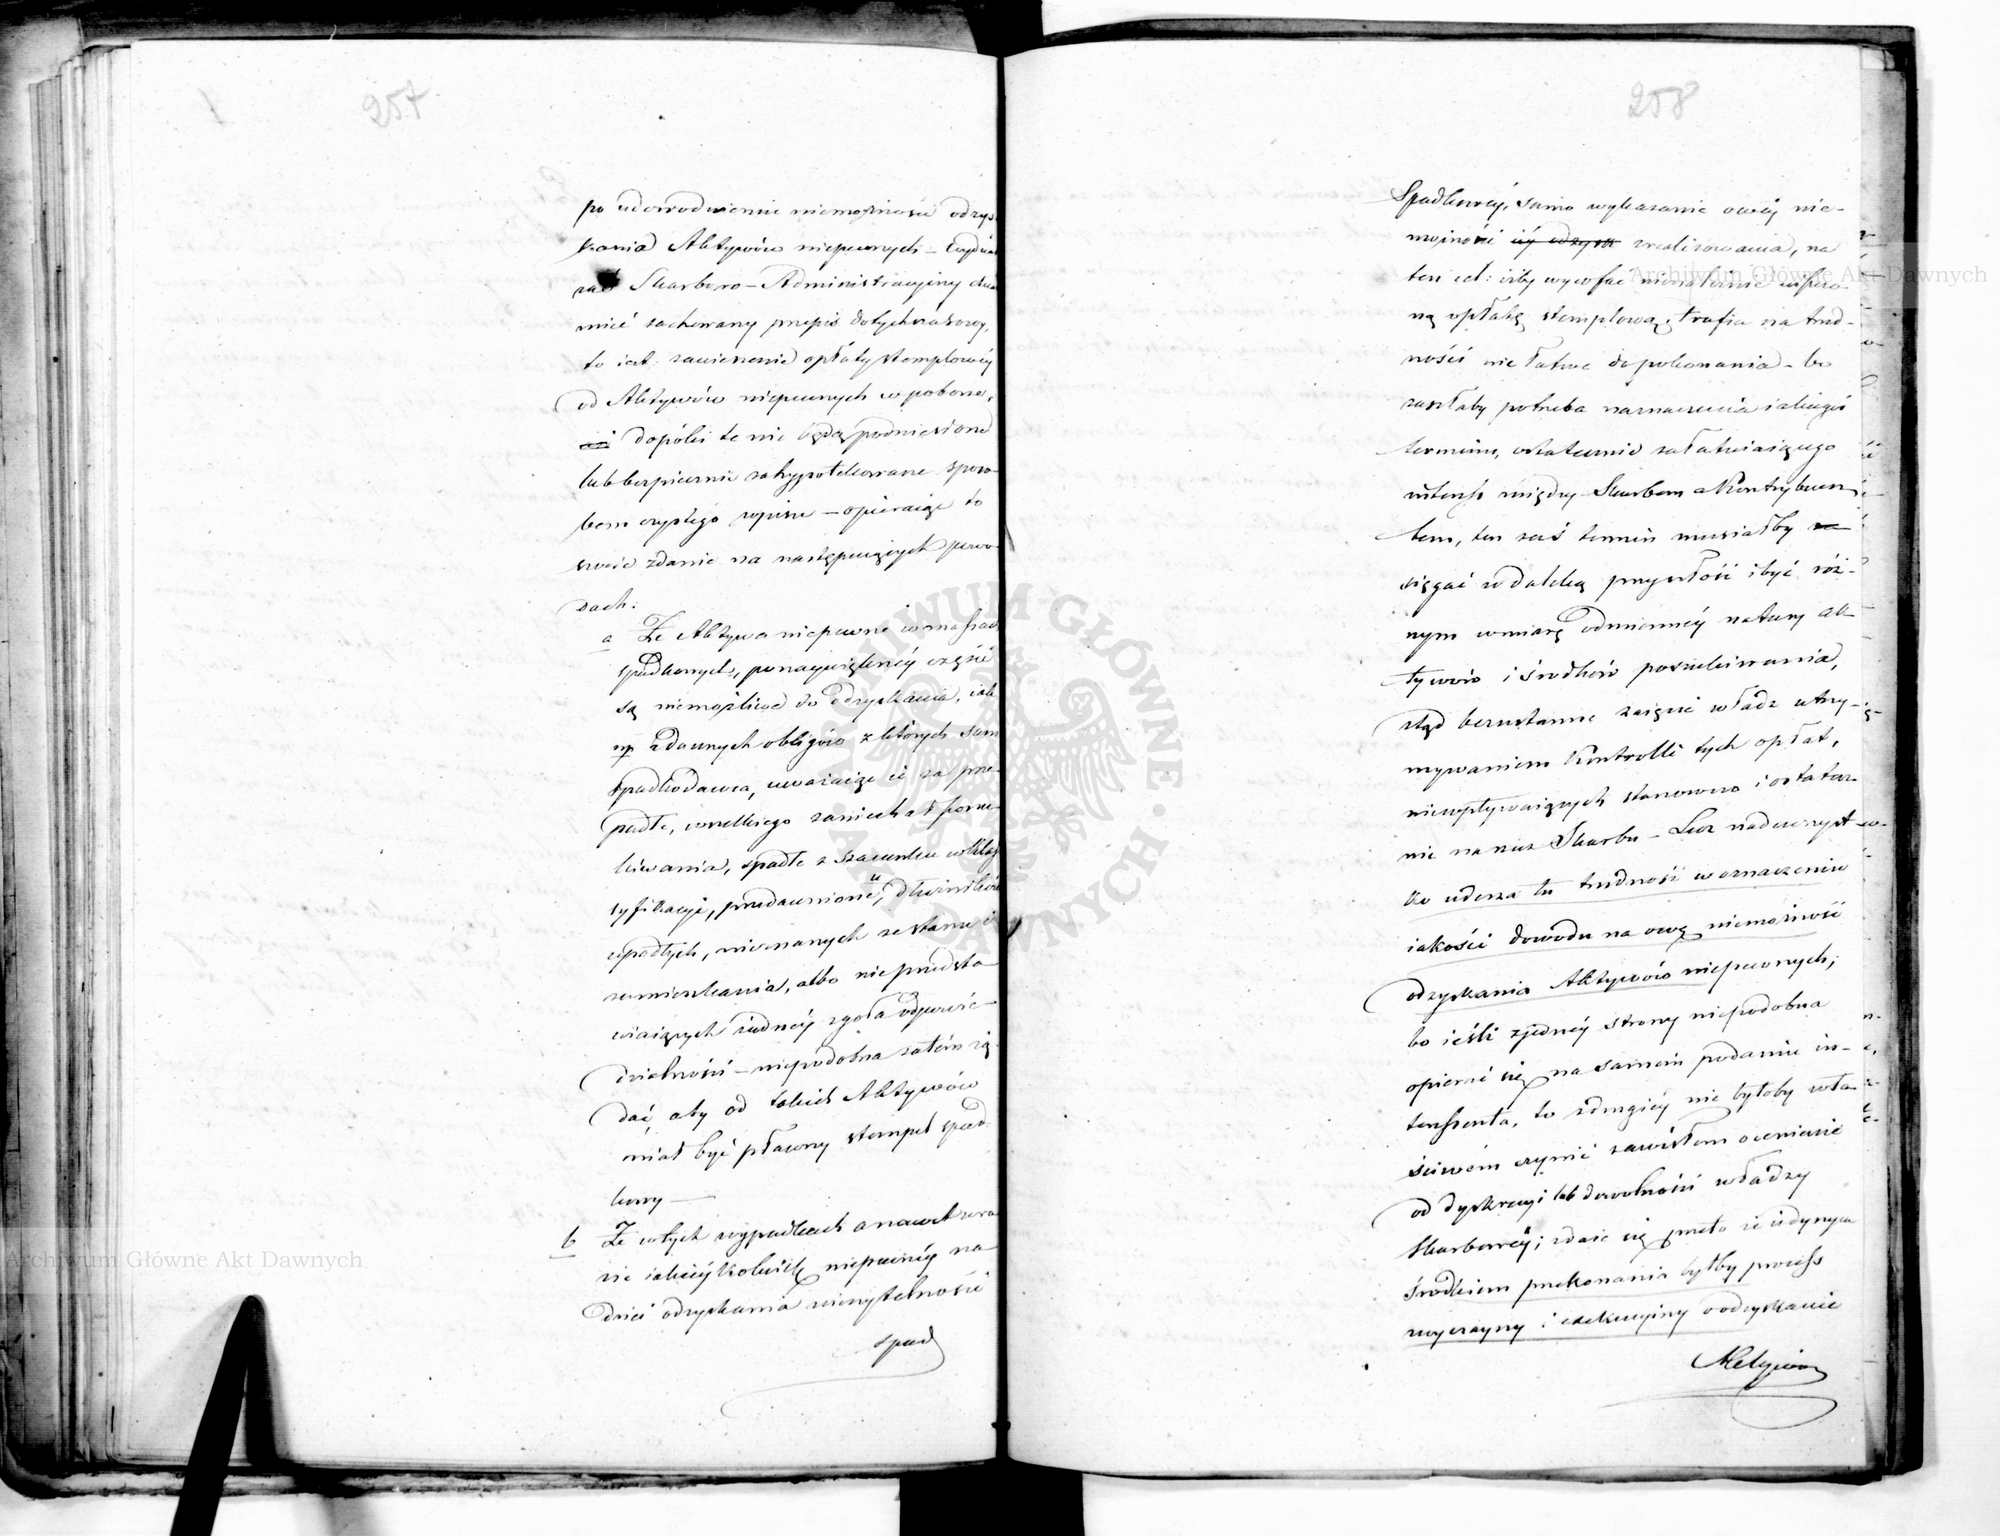 257
po udowodnieniu niemożności odzys-
kania Aktywów niepewnych – Wydział
zaś Skarbowo – Administracyjny
mieć zachowany przepis dotychczasowy,
to iest: zawieszenie opłaty stemplowéy
od Aktywów niepewnych w poborze,
dopóki te nie będą podniesione
lub bezpiecznie zahypotekowane sposo-
bem czystego wpisu – opieraiąc to
swoie zdanie na następuiących powo-
dach:
a Że Aktywa niepewne w massach
spadkowych, po naywiększéy części
są niemożliwe do odzyskania, iak
np z dawnych obligów z których sam
spadkodawca, uważaiąc ie za prze-
padłe, wszelkiego zaniechał poszu-
kiwania, spadłe z szacunku w klas-
syfikacyi, przedawnione, u dłużników
upadłych, nieznanych ze stanu i
zamieszkania, albo nieprzedsta-
wiaiących żadnéy zgoła odpowie-
dzialności – niepodobna zatém żą-
dać, aby od takich Aktywów
miał być płacony stempel spad-
kowy –
b Że w tych wypadkach a nawet w ra-
zie iakiéykolwiek niepewnéy na-
dziei odzyskania wierzytelności
spad
258
Spadkowéy, samo wykazanie owéy nie-
możności iéy odzysk zrealizowania, na
ten cel: iżby wywołać niezatém zupeł-
ną opłatę stemplową, trafia na trud-
ności nie łatwe do pokonania – bo
zaszłaby potrzeba naznaczenia iakiegoś
terminu, ostatecznie załatwiaiącego
interess między Skarbem a Kontrybuen-
tem, ten zaś termin musiałby
sięgać w daleką przyszłość i być róż-
nym w miarę odmiennéy natury ak-
tywów i środków poszukiwania,
ztąd bezustanne zaięcie władz utrzy-
mywaniem Kontrolli tych opłat,
niewpływaiących stanowczo i ostatecz-
nie na rzecz Skarbu – Lecz nadewszyst-
ko uderza tu trudność w oznaczeniu
iakości dowodu na ową niemożność
odzyskania Aktywów niepewnych;
bo ieśli z jednéy strony niepodobna
opierać się na samém podaniu in-
teressenta, to z drugiéy nie byłoby wła-
ściwém czynić zawisłem ocenienie
od dyskrecyi lub dowolności władzy
Skarbowéy; zdaie się przeto że iedynym
środkiem przekonania byłby process
zwyczayny i exekucyiny o odzyskanie
Aktywów
Archiwum Główne Akt Dawnych
Archiwum Główne Akt Dawnych
ARCHIWUM GŁÓWNE AKT DAWNYCH